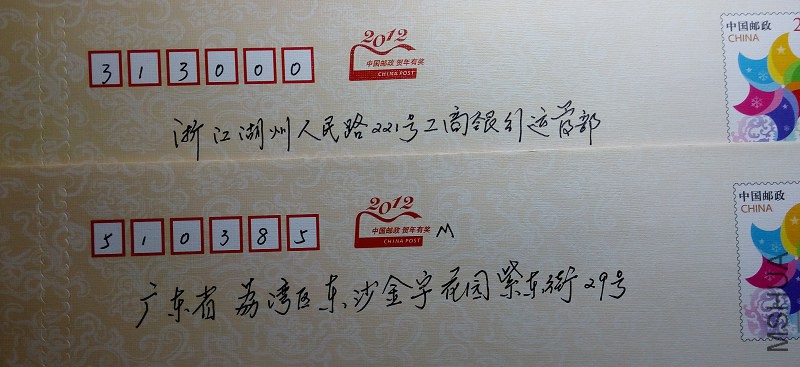 313000
2012
中国邮政 贺年有奖
CHINA POST
中国邮政
CHINA
2
浙江湖州人民路221号工商银行运营部
510385
2012
中国邮政 贺年有奖
CHINA POST
M
中国邮政
CHINA
广东省荔湾区东沙金宇花园紫东街29号
MSHUA